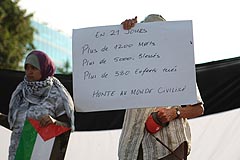 EN 21 JOURS
Plus de 1200 Morts
Plus de 5000 Blessés
Plus de 580 Enfants tués
HONTE AU MONDE CIVILISÉ